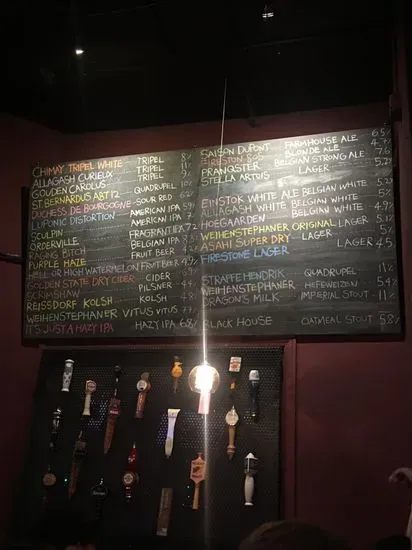 CHIMAY TRIPEL WHITE TRIPEL 8%
ALLAGASH CURIEUX TRIPEL 11%
GOUDEN CAROLUS TRIPEL 9%
ST. BERNARDUS ABT 12 QUADRUPEL 10%
DUCHESS DE BOURGOGNE SOUR RED 6%
LUPONIC DISTORTION AMERICAN IPA 59%
SCULPIN AMERICAN IPA 7%
ORDERVILLE FRAGRANT IPA 7.2
RAGING BITCH BELGIAN IPA 8.3
PURPLE HAZE FRUIT BEER 4.2
HELL OR HIGH WATERMELON FRUIT BEER 4.9%
GOLDEN STATE DRY CIDER CIDER 6.9%
SCRIMSHAW PILSNER 4.4%
REISSDORF KOLSH KOLSH 4.8%
WEIHENSTEPHANER VITUS VITUS 7.7%
IT'S JUST A HAZY IPA HAZY IPA 6.8%
SAISON DUPONT FARMHOUSE ALE 6.5%
FIRESTON 805 BLONDE ALE 4.7%
PRANQSTER BELGIAN STRONG ALE 7.6
STELLA ARTOIS LAGER 5.2%
EINSTOK WHITE ALE BELGIAN WHITE 5.2%
ALLAGASH WHITE BELGIAN WHITE 5.2%
HOEGAARDEN BELGIAN WHITE 4.9%
WEIHENSTEPHANER ORIGINAL LAGER 5.12
ASAHI SUPER DRY LAGER 5%
FIRESTONE LAGER LAGER 4.5
STRAFFE HENDRIK QUADRUPEL 11%
WEIHENSTEPHANER HEFEWEIZEN 5.4
DRAGON'S MILK IMPERIAL STOUT 11%
BLACK HOUSE OATMEAL STOUT 5.8%